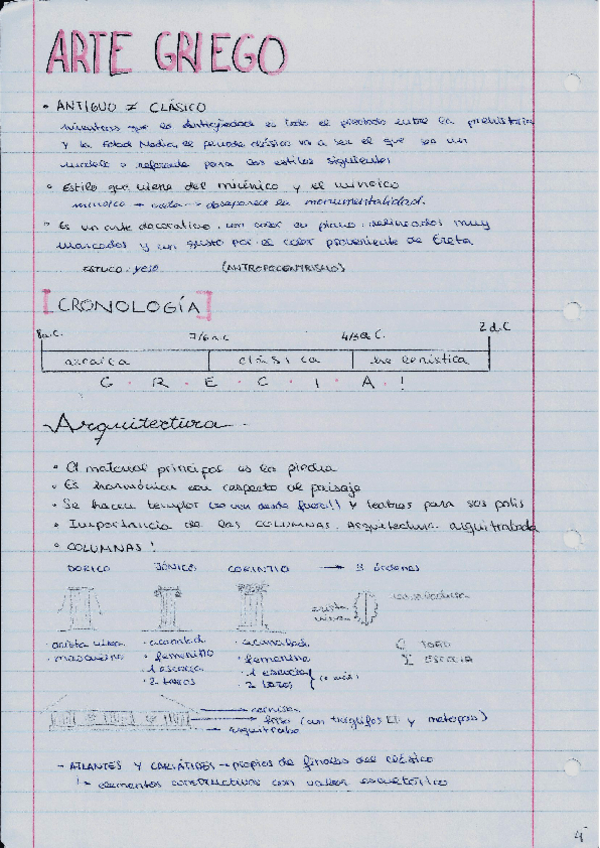 ARTE GRIEGO
• ANTIGUO ≠ CLÁSICO
mientras que la Antigüedad es todo el período entre la prehistoria
y la Edad Media, el período clásico va a ser el que sea un
modelo o referente para los estilos siguientes
• Estilo que viene del micénico y el minoico
minoico → desaparece la monumentalidad.
• Es un arte decorativo, con color en plano, delineados muy
marcados y un gusto por el color proveniente de Creta
ESTUCO: yeso (ANTROPOCENTRISMO)
[CRONOLOGÍA]
8 a.C. 7/6 a.C 4/3 a.C. 2 d.C
arcaica clásica helenística
G · R · E · C · I · A · !
Arquitectura
• El material principal es la piedra
• Es harmónica con respecto al paisaje
• Se hacen templos (se ven desde fuera!!) y teatros para sas polis
• Importáncia de las COLUMNAS. Arquitectura arquitrabada
• COLUMNAS!
DORICO JÓNICO CORINTIO → 3 órdenes
arista viva
arista viva · acanalad. · acanalad. TORO
· masculino · femenino · femenino ESCOCIA
· 1 escocia · 1 escocia
· 2 toros · 2 toros (o más)
cornisa
friso (con triglifos y metopas)
arquitrabe
- ATLANTES Y CARIÁTIDES → propios de finales del clásico
- elementos constructivos con valor escultórico
4